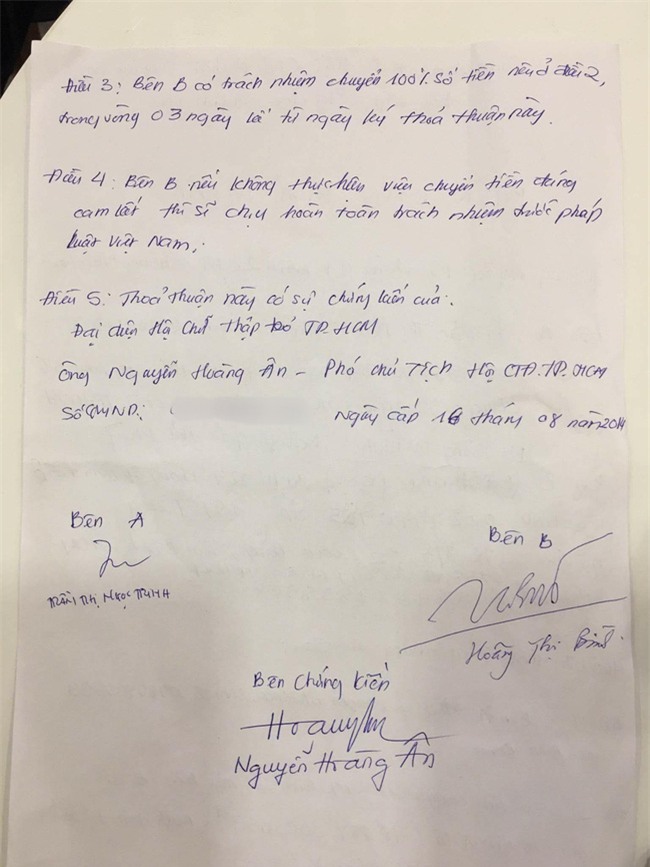 Điều 3: Bên B có trách nhiệm chuyển 100% số tiền nêu ở điều 2,
trong vòng 03 ngày kể từ ngày ký thoả thuận này.
Điều 4: Bên B nếu không thực hiện việc chuyển tiền đúng
cam kết thì sẽ chịu hoàn toàn trách nhiệm trước pháp
luật Việt Nam.
Điều 5: Thoả thuận này có sự chứng kiến của:
Đại diện Hội Chữ thập đỏ TP.HCM
Ông Nguyễn Hoàng Ân - Phó chủ Tịch Hội CTĐ.TP.HCM
Số CMND: Ngày cấp 16 tháng 08 năm 2014
Bên A
Bên B
TRẦN THỊ NGỌC TRINH
Hoàng Thị
Bên Chứng kiến
Nguyễn Hoàng Ân